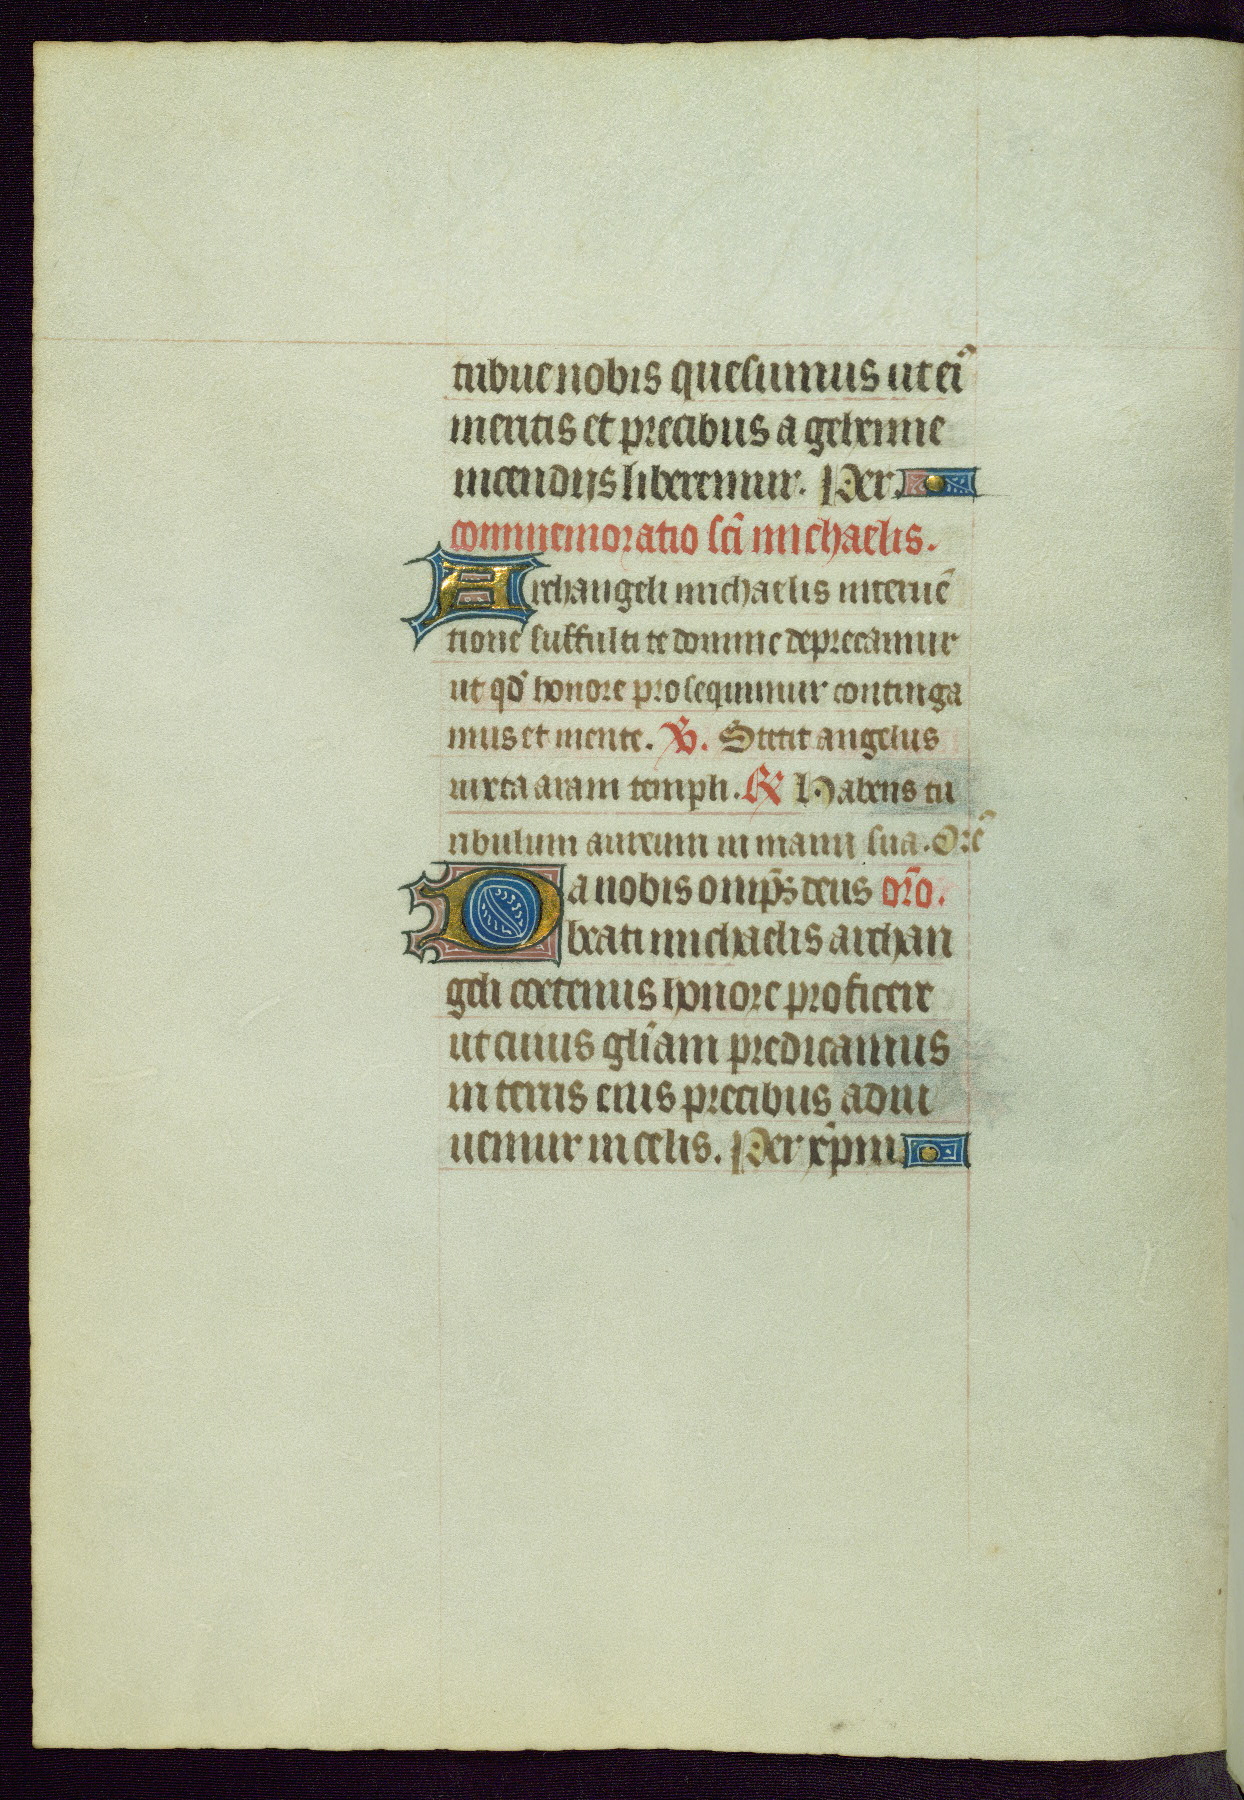 tribue nobis quesumus ut eiꝰ
meritis et precibus a gehenne
incendijs liberemur. Per.
commemoratio sc̄i michaelis.
Archangeli michaelis interuē
tione suffulti te domine deprecamur
ut qd̄ honore prosequimur continga
mus et mente. ℣. Stetit angelus
iuxta aram templi. ℟ Habens tu
ribulum aureum in manu sua. Orē
Da nobis omp̄s deus or̄o.
beati michaelis archan
geli eotenus honore proficere
ut cuius gl̄iam predicamus
in terris eius precibus adiu
uemur in celis. Per xp̄m